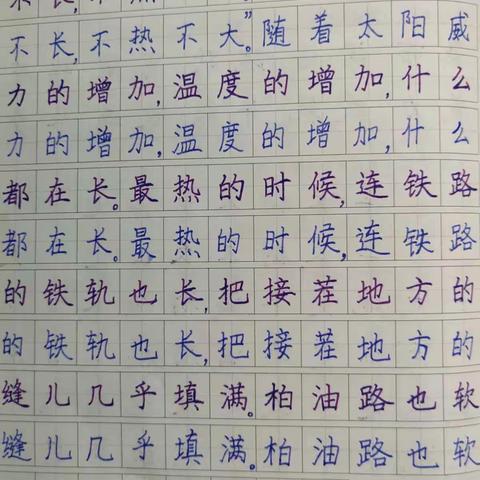 不长,不热不大”。随着太阳威
力的增加,温度的增加,什么
力的增加,温度的增加,什么
都在长。最热的时候,连铁路
都在长。最热的时候,连铁路
的铁轨也长,把接茬地方的
的铁轨也长,把接茬地方的
缝儿几乎填满。柏油路也软
缝儿几乎填满。柏油路也软